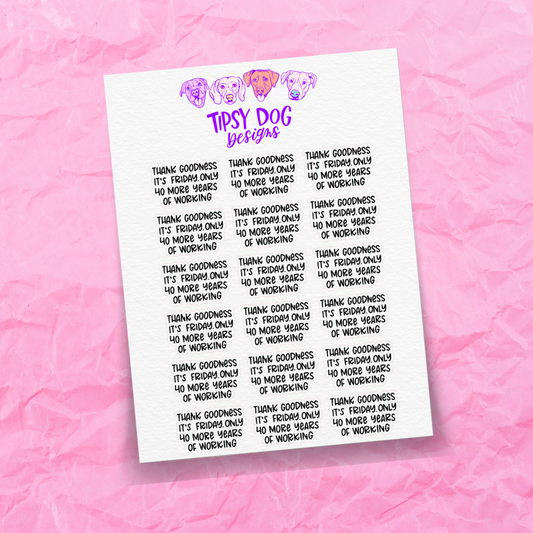 TIPSY DOG
Designs
THANK GOODNESS
IT'S FRIDAY.ONLY
40 MORE YEARS
OF WORKING
THANK GOODNESS
IT'S FRIDAY.ONLY
40 MORE YEARS
OF WORKING
THANK GOODNESS
IT'S FRIDAY.ONLY
40 MORE YEARS
OF WORKING
THANK GOODNESS
IT'S FRIDAY.ONLY
40 MORE YEARS
OF WORKING
THANK GOODNESS
IT'S FRIDAY.ONLY
40 MORE YEARS
OF WORKING
THANK GOODNESS
IT'S FRIDAY.ONLY
40 MORE YEARS
OF WORKING
THANK GOODNESS
IT'S FRIDAY.ONLY
40 MORE YEARS
OF WORKING
THANK GOODNESS
IT'S FRIDAY.ONLY
40 MORE YEARS
OF WORKING
THANK GOODNESS
IT'S FRIDAY.ONLY
40 MORE YEARS
OF WORKING
THANK GOODNESS
IT'S FRIDAY.ONLY
40 MORE YEARS
OF WORKING
THANK GOODNESS
IT'S FRIDAY.ONLY
40 MORE YEARS
OF WORKING
THANK GOODNESS
IT'S FRIDAY.ONLY
40 MORE YEARS
OF WORKING
THANK GOODNESS
IT'S FRIDAY.ONLY
40 MORE YEARS
OF WORKING
THANK GOODNESS
IT'S FRIDAY.ONLY
40 MORE YEARS
OF WORKING
THANK GOODNESS
IT'S FRIDAY.ONLY
40 MORE YEARS
OF WORKING
THANK GOODNESS
IT'S FRIDAY.ONLY
40 MORE YEARS
OF WORKING
THANK GOODNESS
IT'S FRIDAY.ONLY
40 MORE YEARS
OF WORKING
THANK GOODNESS
IT'S FRIDAY.ONLY
40 MORE YEARS
OF WORKING